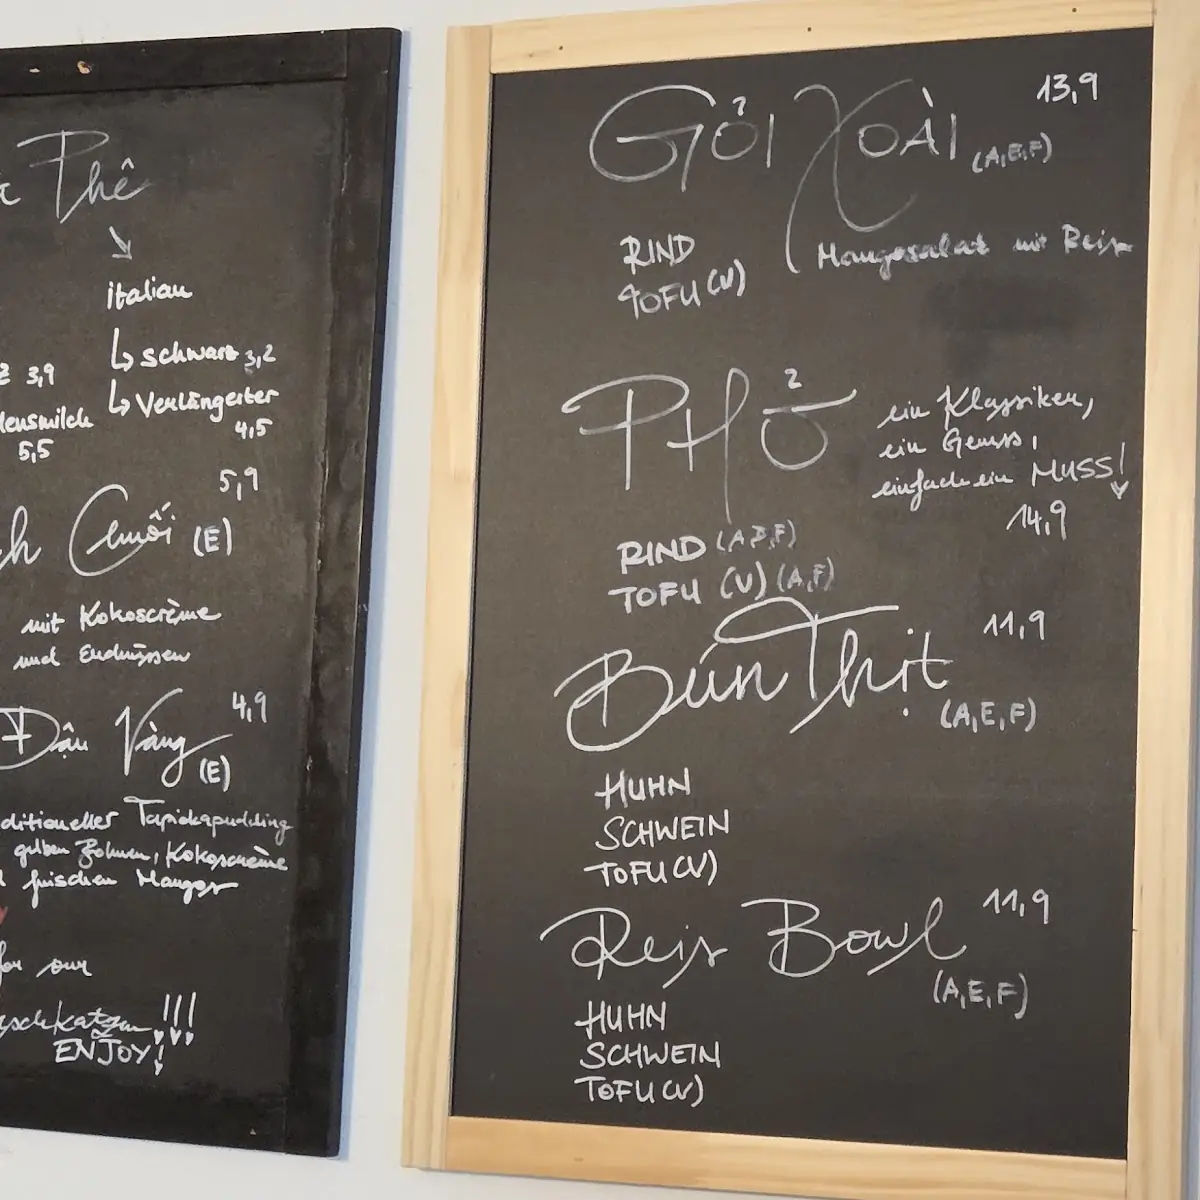 Phê
italian
↳ schwarz 3,2
3,9
↳ Verlängerter
4,5
5,5
5,9
Chuối (E)
mit Kokoscrème
und Erdnüssen
4,9
Đậu Vàng
(E)
Tapiokapudding
gelben Bohnen, Kokoscrème
frischen Mangos
for our
ENJOY!
13,9
GỎI XOÀI (A,E,F)
RIND
TOFU (V)
Mangosalat mit Reis
PHỞ
ein Klassiker,
ein Genuss,
einfach ein MUSS!
14,9
RIND
TOFU (V) (A,F)
11,9
Bún Thịt
(A,E,F)
HUHN
SCHWEIN
TOFU (V)
11,9
Reis Bowl
(A,E,F)
HUHN
SCHWEIN
TOFU (V)